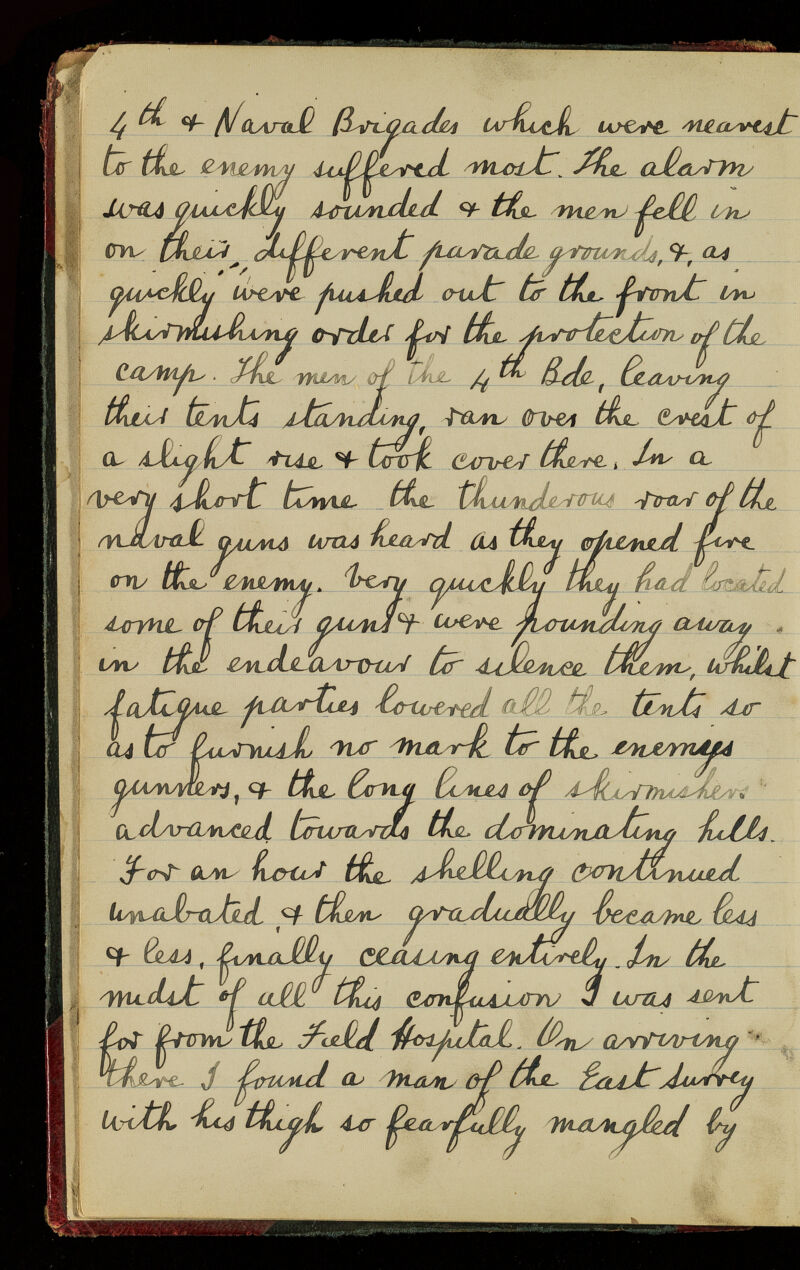 4th & Naval Brigades which were nearest
to the enemy suffered most. The alarm
was quickly sounded & the men fell in
on their, different parade grounds, &, as
quickly were pushed out to the front in
skirmishing order for the protection of the
camp. The men of the 4th Bde, leaving
their tents standing, ran over the crest of
a slight rise & took cover there. In a
very short time the thunderous roar of the
naval guns was heard as they opened fire
on the enemy. Very quickly they had located
some of their guns & were pounding away
in the endeavour to silence them, whilst
fatigue parties lowered all the tents so
as to furnish no mark to the enemys
gunners, & the long lines of skirmishers
advanced towards the dominating hills.
For an hour the shelling continued
unabated, & then gradually became less
& less, finally ceasing entirely. In the
midst of all this confusion I was sent
for from the Field Hospital. On arriving
there I found a man of the East Surrey
with his thigh so fearfully mangled by